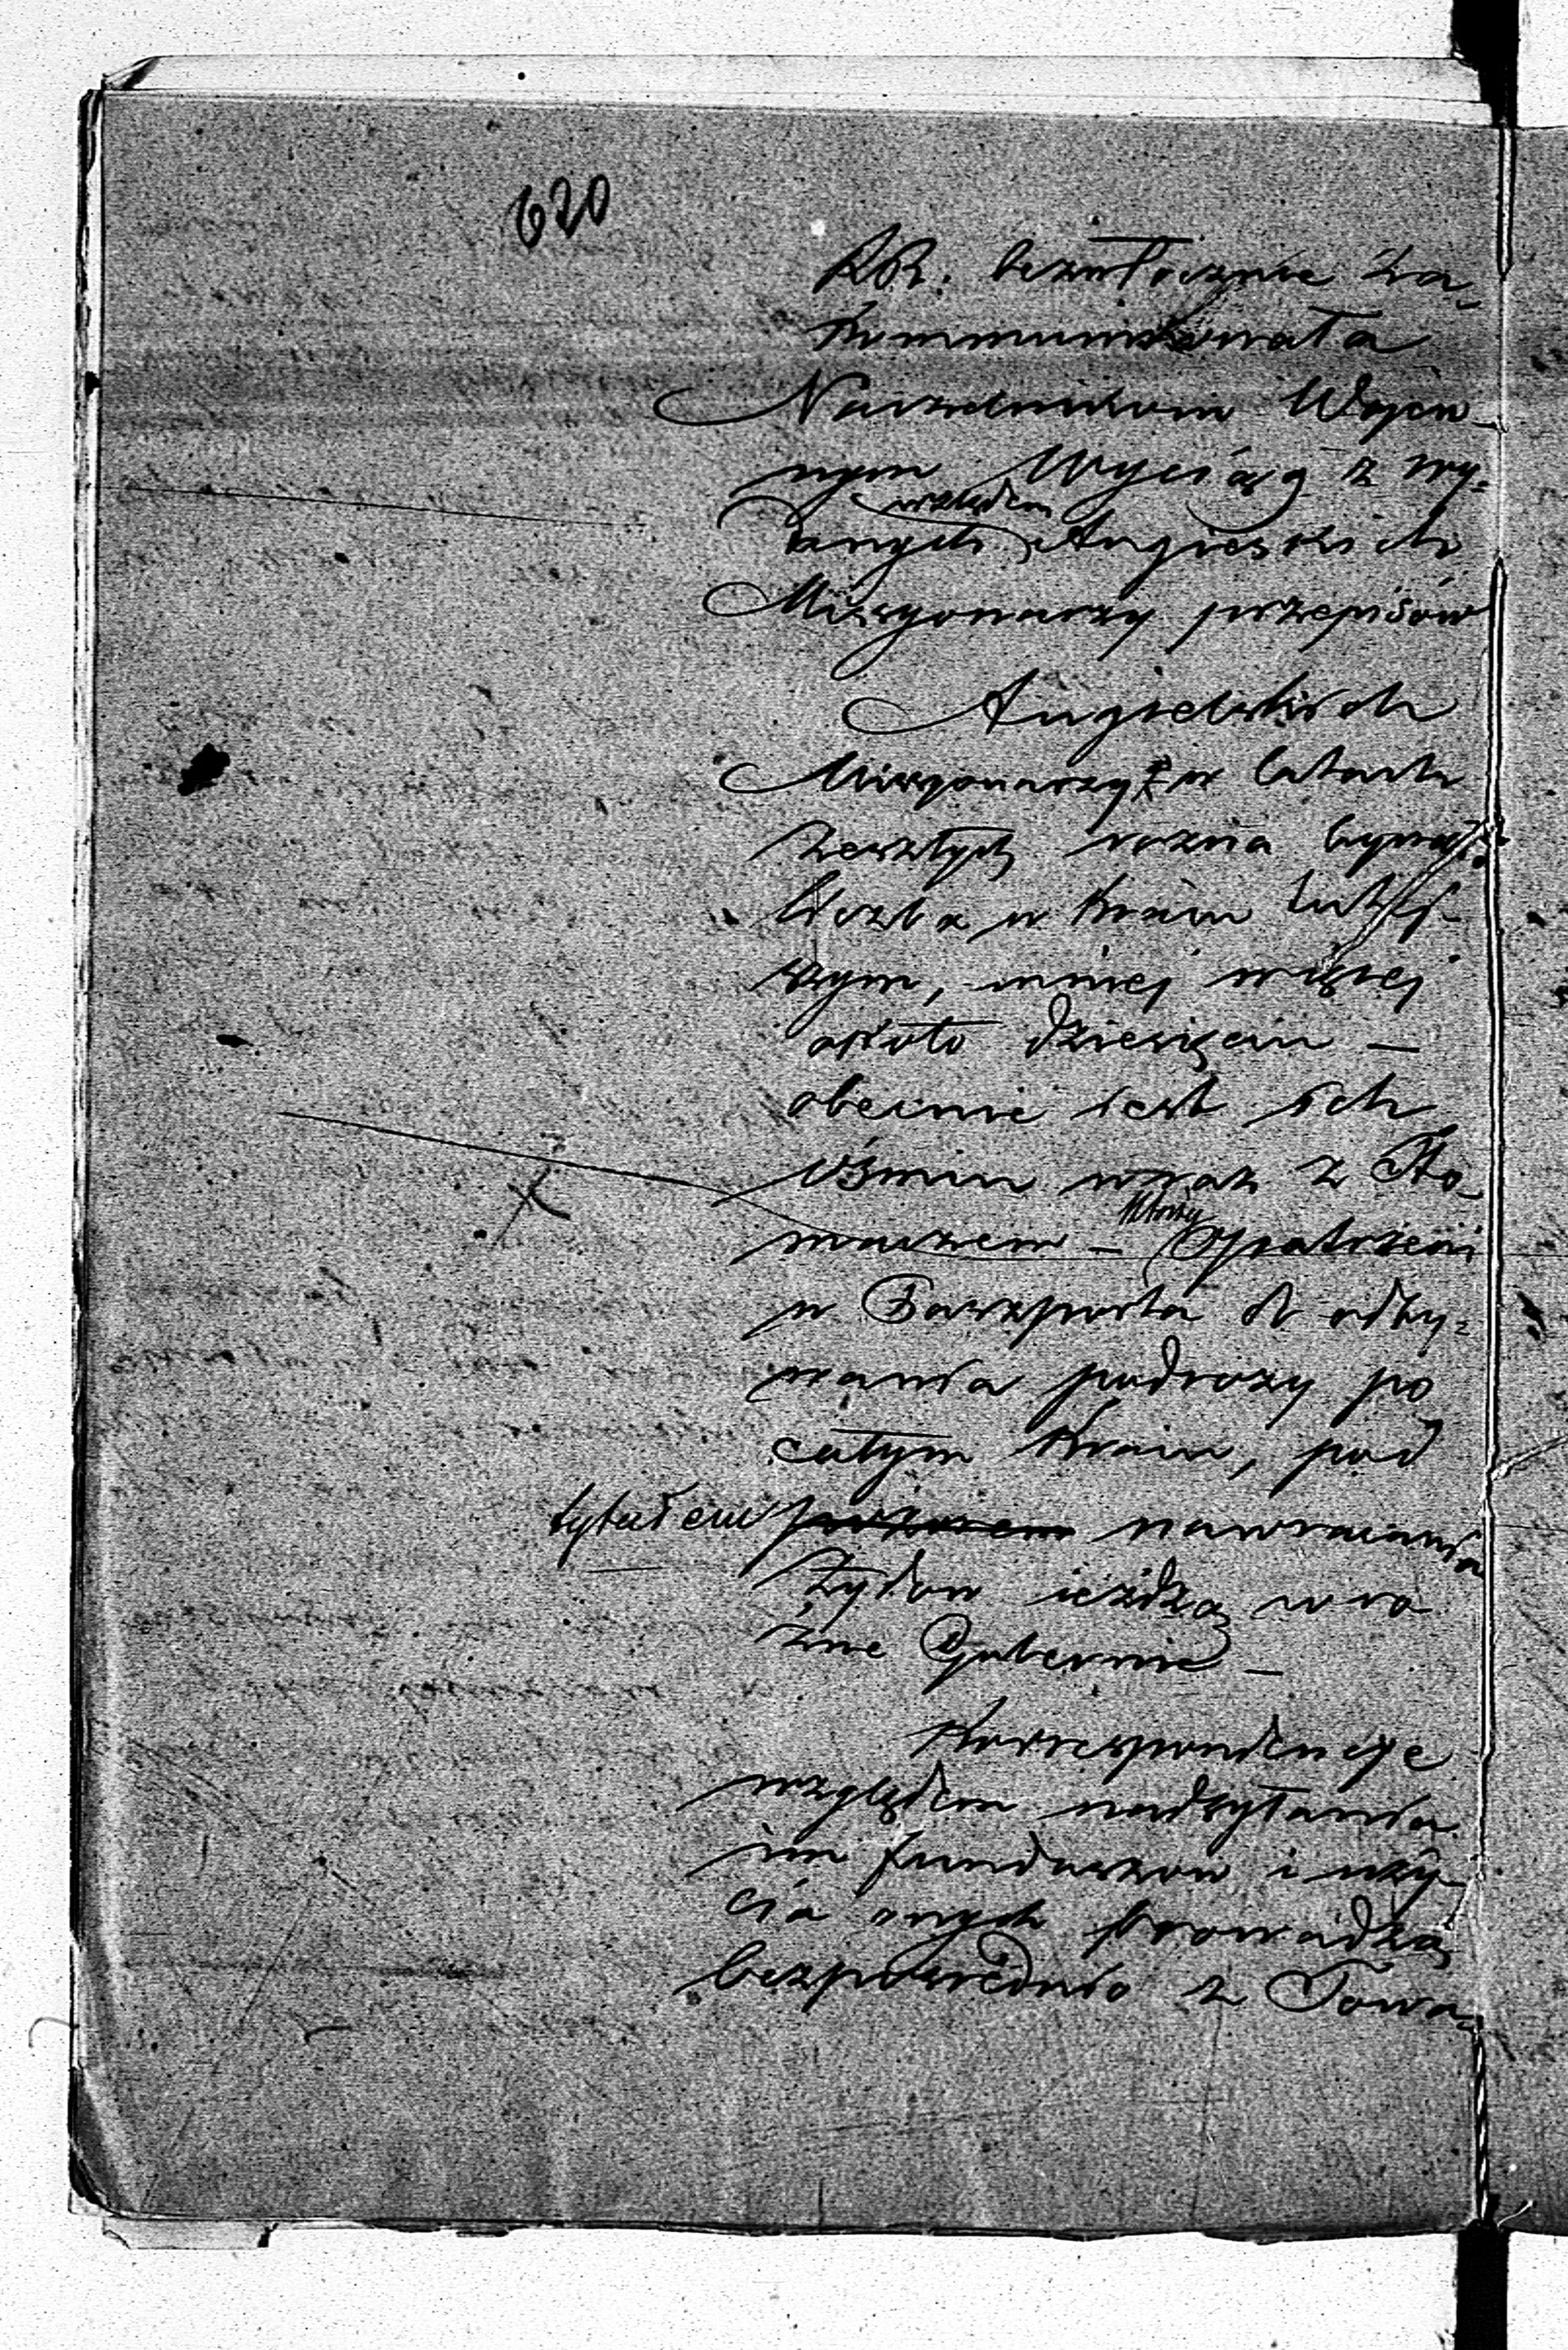 620
KR. bezwłocznie za-
kommunikowała
Naczelnikom Wojen-
nym Wyciąg z wy-
względem
danych Angielskich
Missyonarzy przepisów
Angielskich
Missyonarzy w latach
zeszłych rożna bywała
liczba w kraiu tutej-
szym, mniej więcej
około dziesięciu —
obecnie iest ich
óśmiu wraz z Tło-
maczem — Opatrzeni
w Paszporta do odby-
wania podroży po
całym kraiu, pod
tytułem pozorem nawracania
Żydow ieżdżą w ro
żne Gubernie —
Korrespondencye
względem nadsyłania
im funduszow i uży-
cia onych prowadzą
bezpośrednio z Towa-